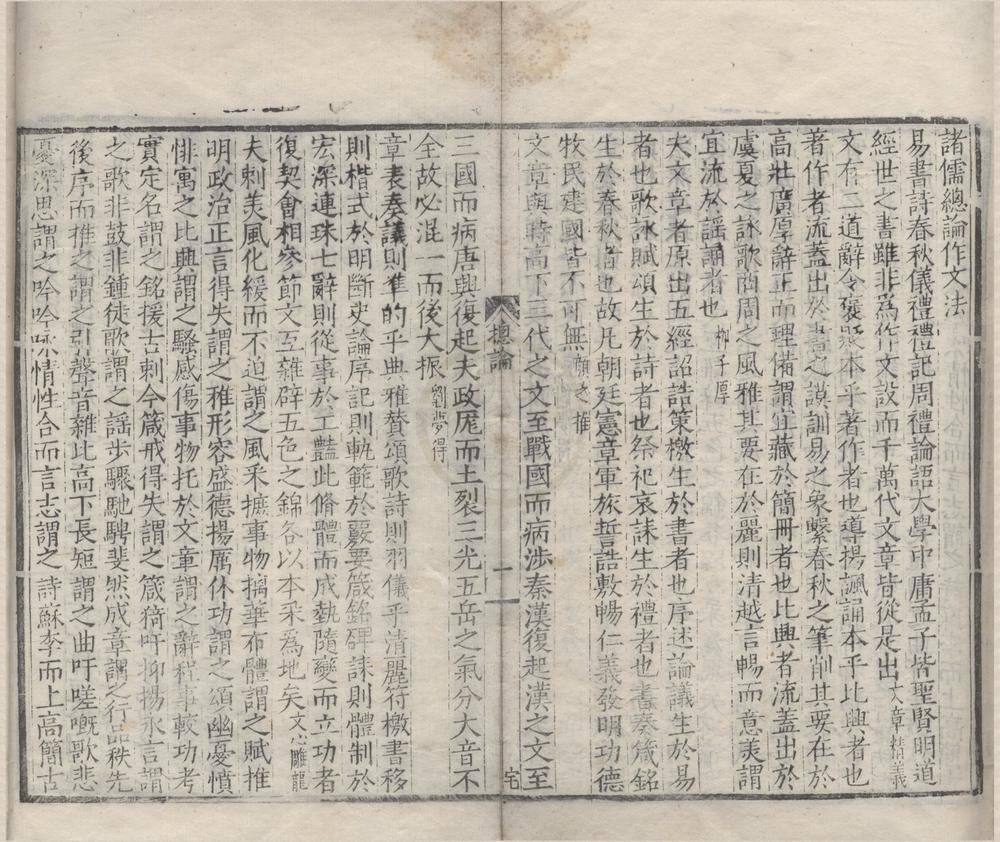 諸儒總論作文法
易書詩春秋儀禮禮記周禮論語大學中庸孟子皆聖賢明道
經世之書雖非爲作文設而千萬代文章皆從是出文章精義
文有二道辭令褒貶本乎著作者也導揚諷誦本乎比興者也
著作者流蓋出於書之謨訓易之象繫春秋之筆削其要在於
高壯廣厚辭正而理備謂宜藏於簡冊者也比興者流蓋出於
虞夏之詠歌商周之風雅其要在於麗則清越言暢而意美謂
宜流於謡誦者也柳子厚
夫文章者原出五經詔誥策檄生於書者也序述論議生於易
者也歌詠賦頌生於詩者也祭祀哀誄生於禮者也書奏箴銘
生於春秋者也故凡朝廷憲章軍旅誓誥敷暢仁義發明功德
牧民建國皆不可無顔之推
文章與時高下三代之文至戰國而病涉秦漢復起漢之文至
總論
一
宅
三國而病唐興復起夫政厖而土裂三光五岳之氣分大音不
全故必混一而後大振劉夢得
章表奏議則準的乎典雅賛頌歌詩則羽儀乎清麗符檄書移
則楷式於明斷史論序記則軌範於覈要箴銘碑誄則體制於
宏深連珠七辭則從事於工豔此脩體而成勢隨變而立功者
復契會相參節文互雜辟五色之錦各以本采爲地矣文心雕龍
夫刺美風化緩而不迫謂之風釆摭事物摛華布體謂之賦推
明政治正言得失謂之雅形容盛德揚厲休功謂之頌幽憂憤
悱寓之比興謂之騷感傷事物托於文章謂之辭程事較功考
實定名謂之銘援古刺今箴戒得失謂之箴猗吁抑揚永言謂
之歌非鼓非鍾徒歌謂之謡步驟馳騁斐然成章謂之行品秩先
後序而推之謂之引聲音雜比高下長短謂之曲吁嗟嘅歌悲
憂深思謂之吟吟咏情性合而言志謂之詩蘇李而上高簡古